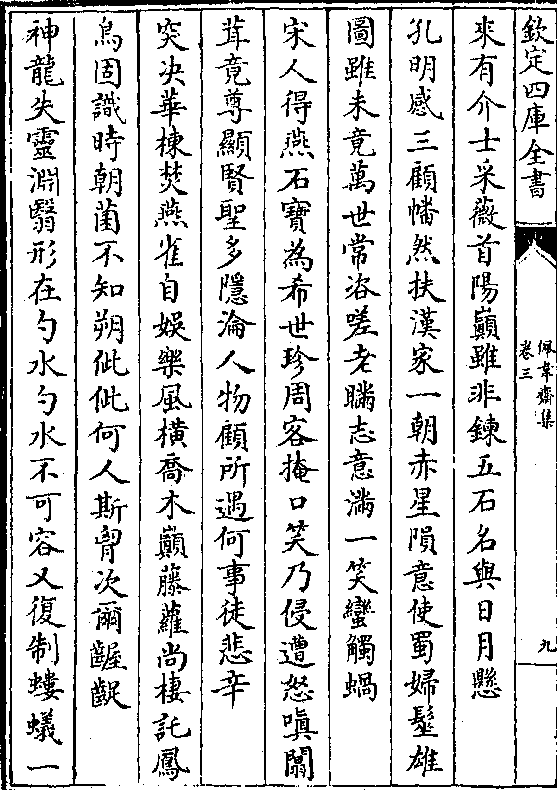 欽定四庫全書
佩韋齋集
卷三
九
来有介士采薇首陽巔雖非鍊五石名與日月懸
孔明感三顧幡然扶漢家一朝赤星隕意使蜀婦髽雄
圖雖未竟萬世常洛嗟老瞞志意滿一笑蠻觸蝸
宋人得燕石寶為希世珍周客掩口笑乃侵遭怒嗔闒
茸竟尊顯賢聖多隱淪人物顧所遇何事徒悲辛
突决華棟焚燕雀自娱樂風横喬木巔藤蘿尚棲託鳳
鳥固識時朝菌不知朔佌佌何人斯胷次爾齷齪
神龍失靈淵翳形在勺水勺水不可容又復制螻蟻一